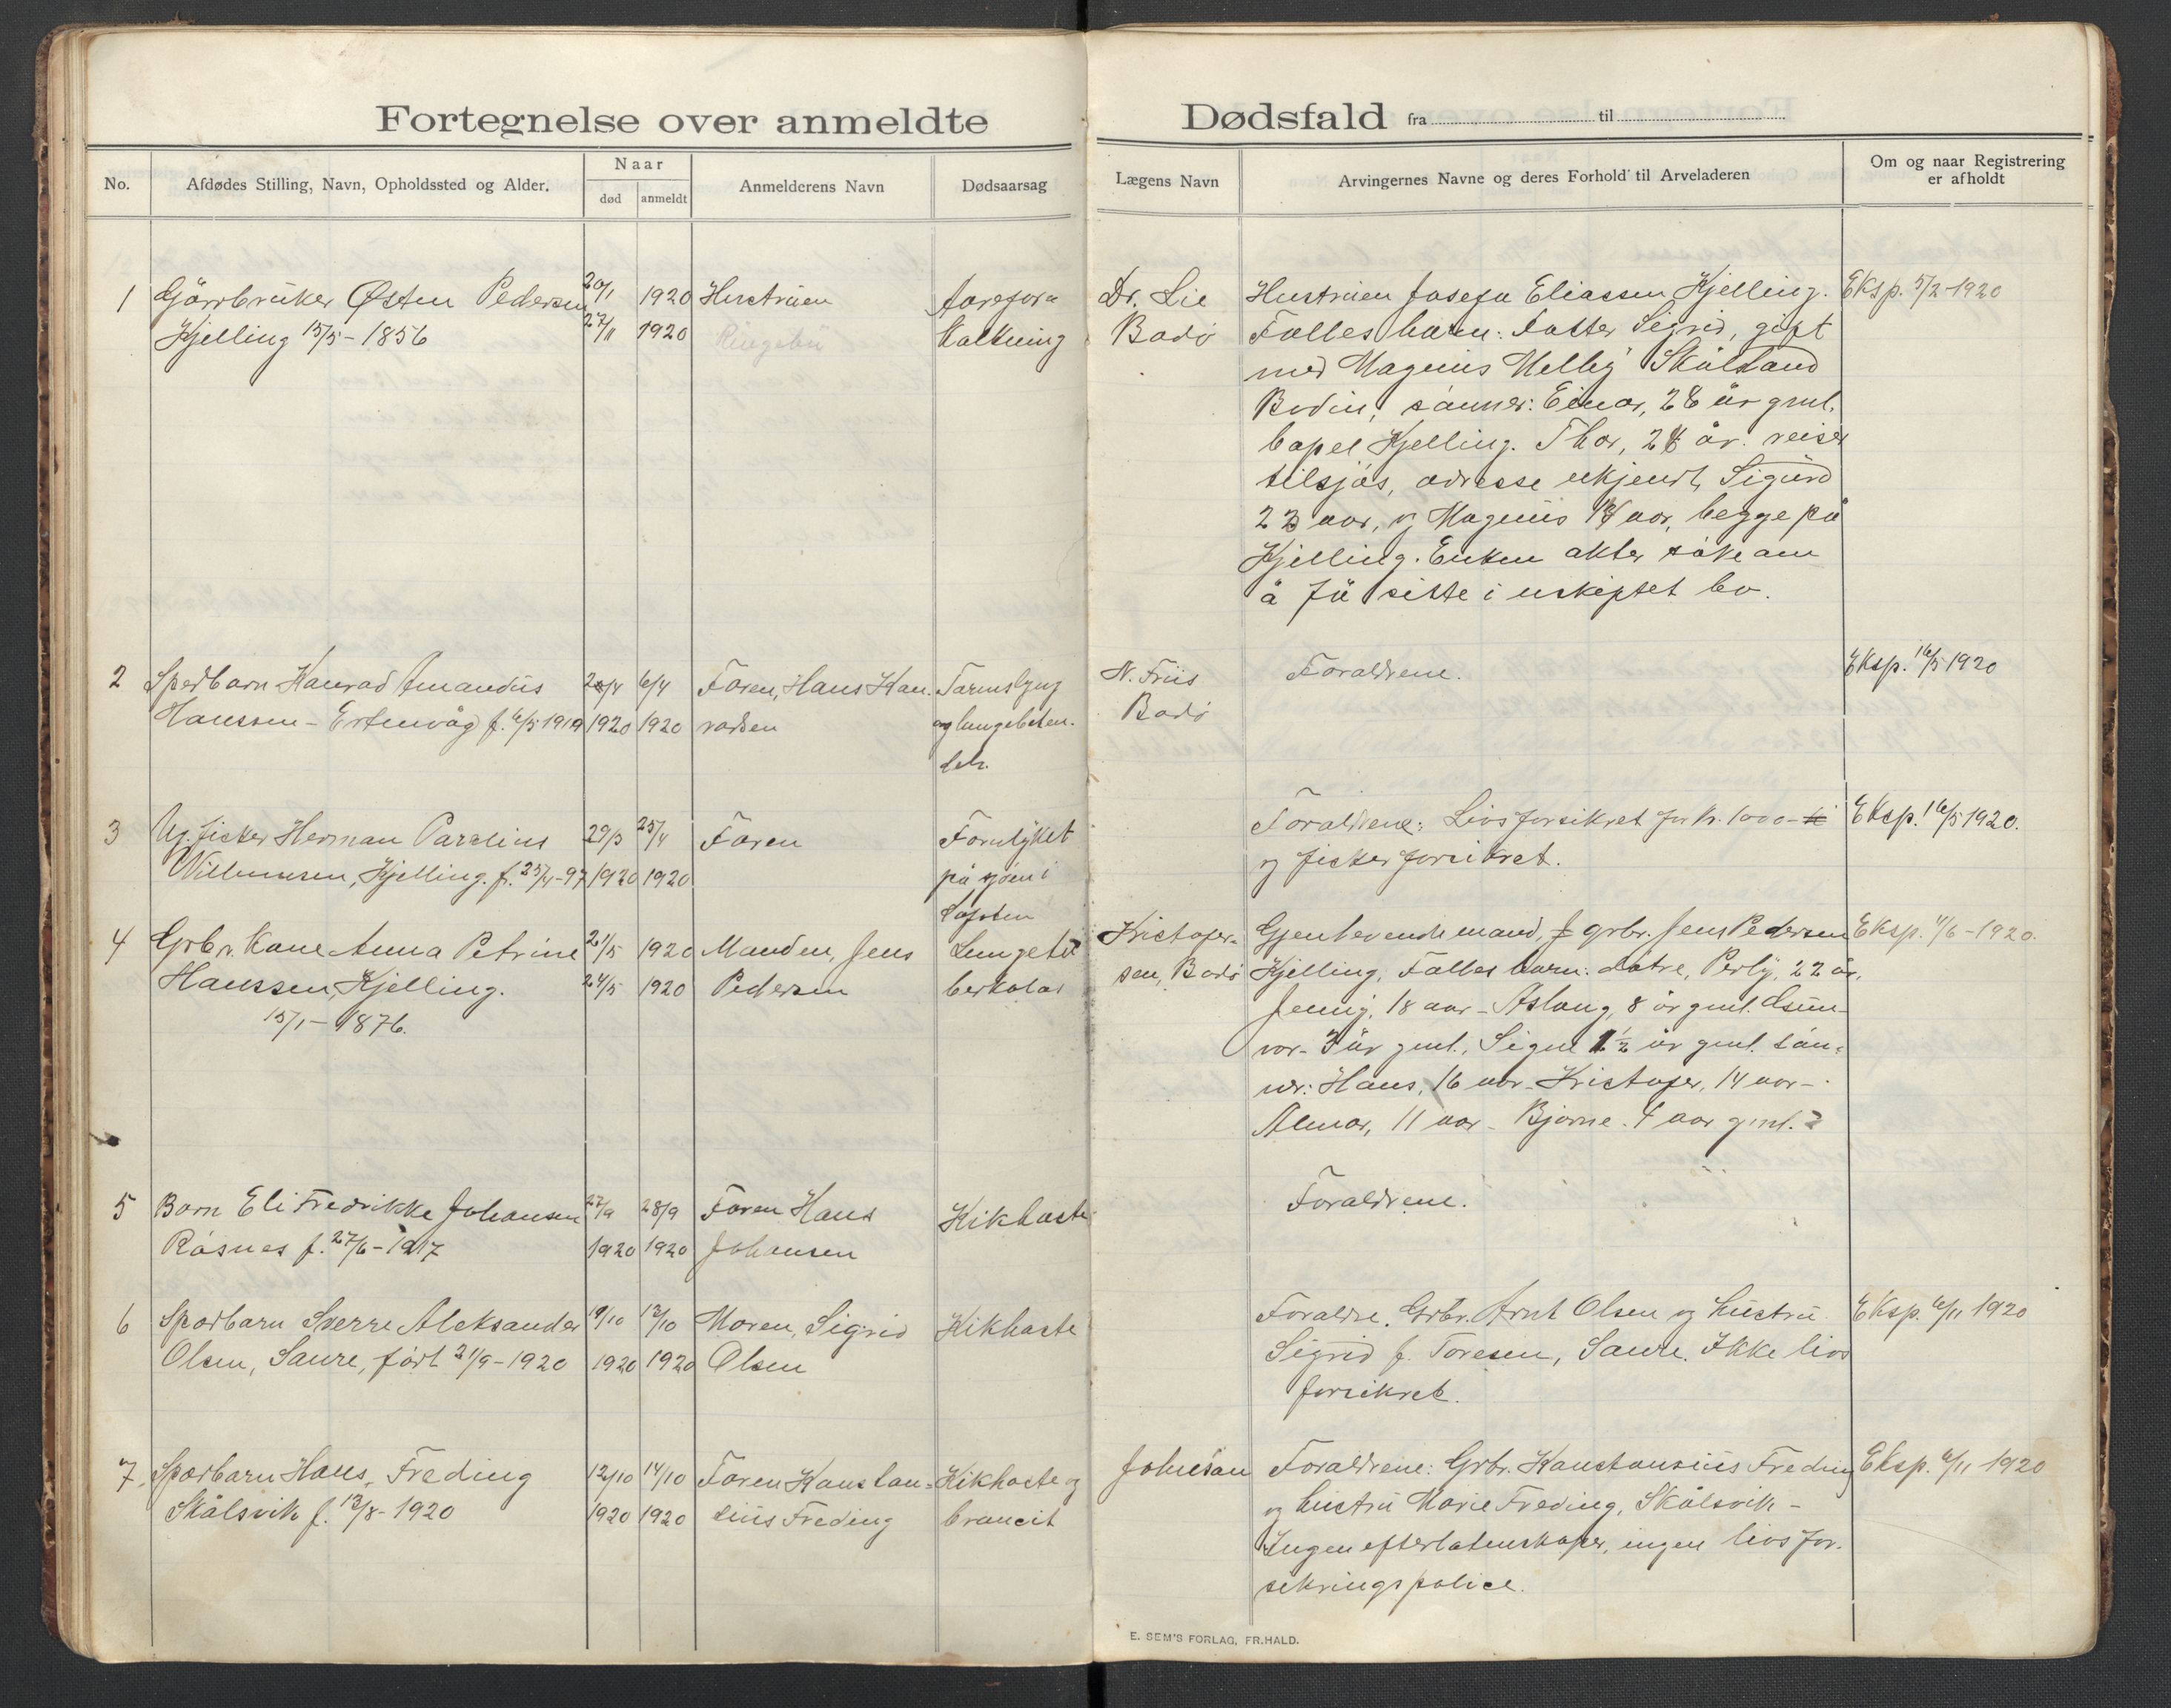 Fortegnelse over anmeldte
Dødsfald fra til
No.
Afdødes Stilling, Navn, Opholdssted og Alder.
Naar
død
anmeldt
Anmelderens Navn
Dødsaarsag
Lægens Navn
Arvingernes Navne og deres Forhold til Arveladeren
Om og naar Registrering
er afholdt
1 Gårrbruker Østen Pedersen 20/1 1920 Hustruen Aarefor-
Kjelling 15/5 - 1856 27/1 1920 kalkning
Dr. Lie
Bodø
Hustruen Josefa Eliassen Kjelling.
Fælles barn: Datter Sigrid, gift
med Magnus Melby Skålland
Bodin, sønner: Einar, 28 år gml.
Kjelling. Thor, 24 år. reiser
tilsjøs, adresse ukjendt, Sigurd
23 aar, og Magnus aar, begge på
Kjelling. Enken akter søke om
å få sitte i uskiptet bo.
Eksp. 5/2-1920
2 Spedbarn Konrad Amandus 6/4 Faren, Hans Kon- Tarmslyng
Hanssen - Ertenvåg f. 6/5 1919 1920 1920 radsen og lungebeten-
delse.
N. Friis
Bodø
Forældrene.
Eksp. 16/5 1920
3 Ug. fisker Herman Parelius 29/3 25/4 Faren Forulykket
Willumsen, Kjelling. f. 25/4-97 1920 1920 på sjøen i
Lofoten
Forældrene: Livsforsikret for kr. 1000-
og fiskerforsikret.
Eksp. 16/5 1920.
4 Grbr. Kone Anna Petrine 21/5 1920 Manden, Jens Lungetu-
Hanssen, Kjelling. 24/5 1920 Pedersen berkolos
15/1 - 1876.
Kristofer-
sen, Bodø
Gjenlevende mand, grbr. Jens Pedersen
Kjelling, Fælles barn: døtre, Perly, 22 år,
Jenny, 18 aar - Aslaug, 8 år gml. Gun-
vor - 3 år gml., Signe 1 1/2 år gml. søn-
ner: Hans, 16 aar - Kristofer, 14 aar -
Almar, 11 aar - Bjarne. 4 aar gml.
Eksp. 4/6 - 1920.
5 Barn Eli Fredrikke Johansen 27/9 28/9 Faren Hans Kikhoste
Røsnes f. 27/6 - 1917 1920 1920 Johansen
Forældrene.
6 Spædbarn Sverre Aleksander 9/10 12/10 Moren, Sigrid Kikhoste
Olsen, Saure, født 21/9 - 1920 1920 1920 Olsen
Forældre. Grbr. Arnt Olsen og hustru
Sigrid f. Toresen, Saure. Ikke livs
forsikret.
Eksp. 6/11 1920
7. Spædbarn Hans Freding 12/10 14/10 Faren Konstan- Kikhoste og
Skålsvik f. 13/8 - 1920 1920 1920 sius Freding broncit
Johnsen
Forældrene: Grbr. Konstansius Freding
og hustru Marie Freding, Skålsvik -
Ingen efterlatenskaper, ingen livsfor-
sekringspolice.
Eksp. 6/11 1920
E. SEM'S FORLAG, FR.HALD.